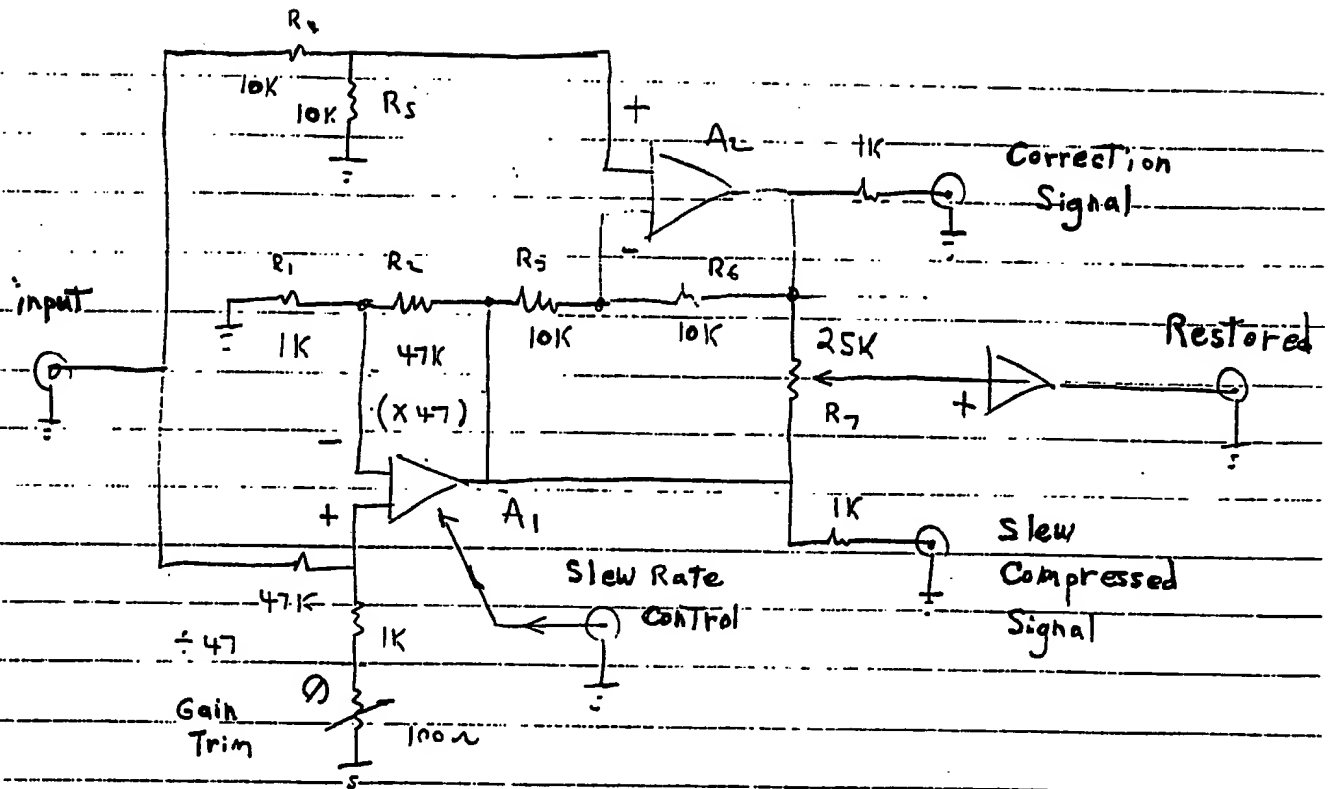 R4
10K
10K
R5
+
A2
1K
Correction
Signal
-
R1
R2
R5
R6
input
1K
47K
10K
10K
25K
Restored
(X47)
R7
+
-
+
A1
1K
Slew
Compressed
Signal
Slew Rate
Control
47K
÷47
1K
Gain
Trim
100Ω